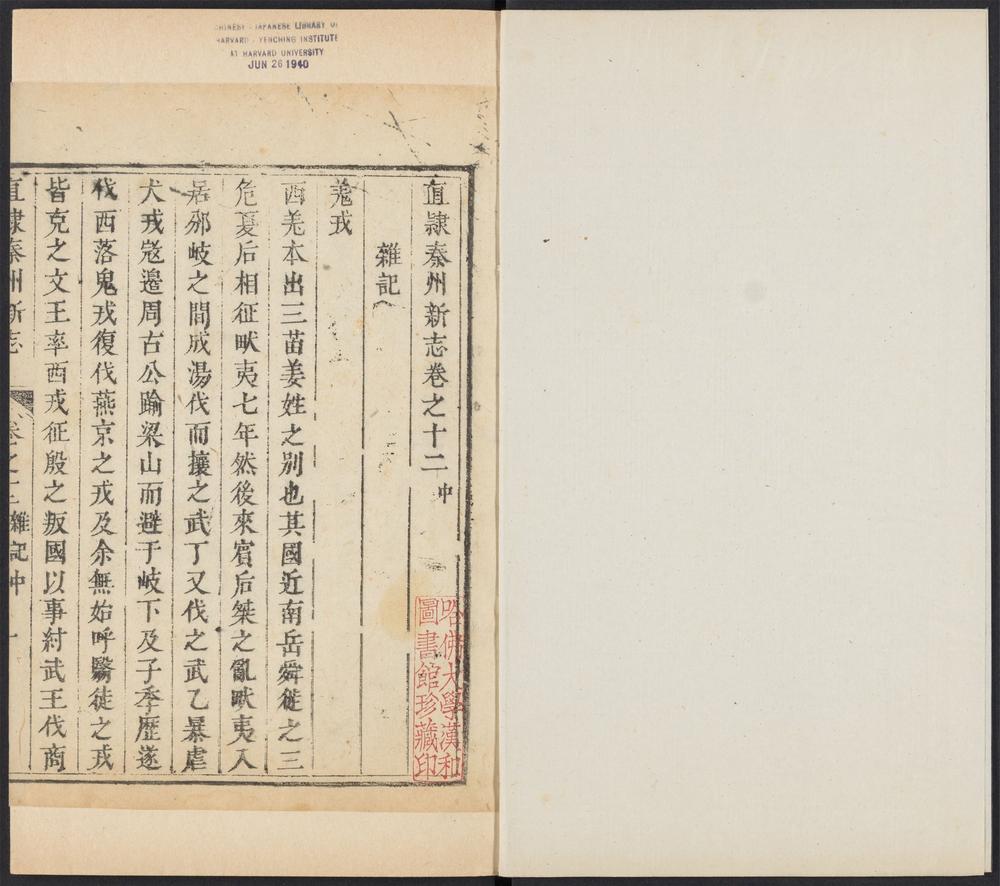 CHINESE - JAPANESE LIBRARY OF
HARVARD - YENCHING INSTITUTE
AT HARVARD UNIVERSITY
JUN 26 1940
直隷秦州新志卷之十二中
雜記
羗戎
西羌本出三苗姜姓之別也其國近南岳舜徙之三
危夏后相征畎夷七年然後來賓后桀之亂畎夷入
居邠岐之間成湯伐而攘之武丁又伐之武乙暴虐
犬戎寇邊周古公踰梁山而避于岐下及子季歷遂
伐西落鬼戎復伐燕京之戎及余無始呼翳徒之戎
皆克之文王率西戎征殷之叛國以事紂武王伐商
直隷秦州新志
卷之十二雜記中
一
哈佛大學漢和
圖書館珍藏印